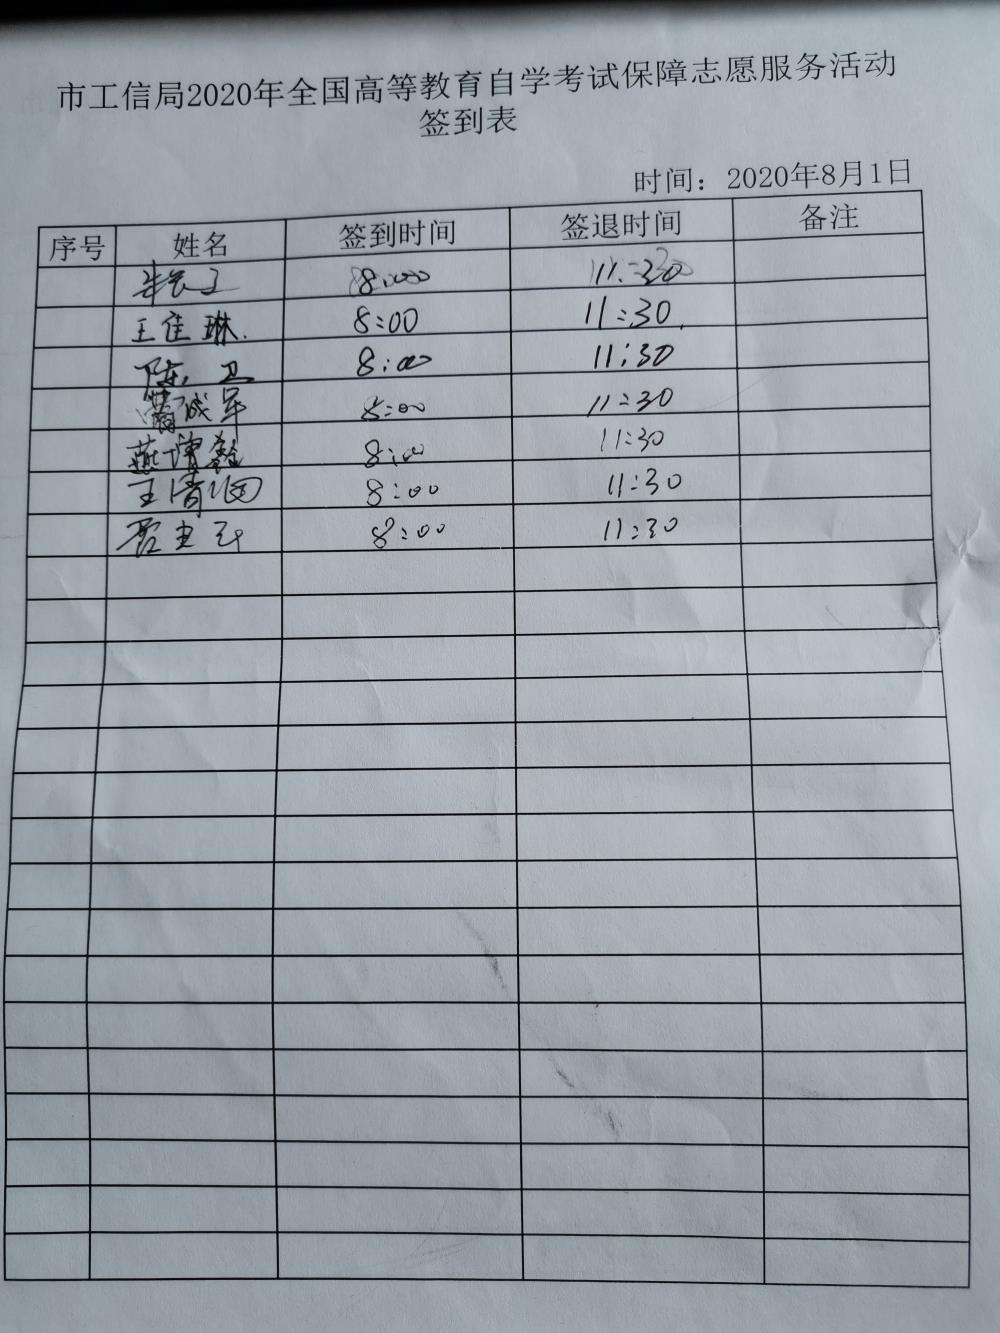 市工信局2020年全国高等教育自学考试保障志愿服务活动
签到表
时间：2020年8月1日
序号 姓名 签到时间 签退时间 备注
8:00 11:30
王佳琳 8:00 11:30
陈卫 8:00 11:30
成军 8:00 11:30
燕 8:00 11:30
王清 8:00 11:30
8:00 11:30